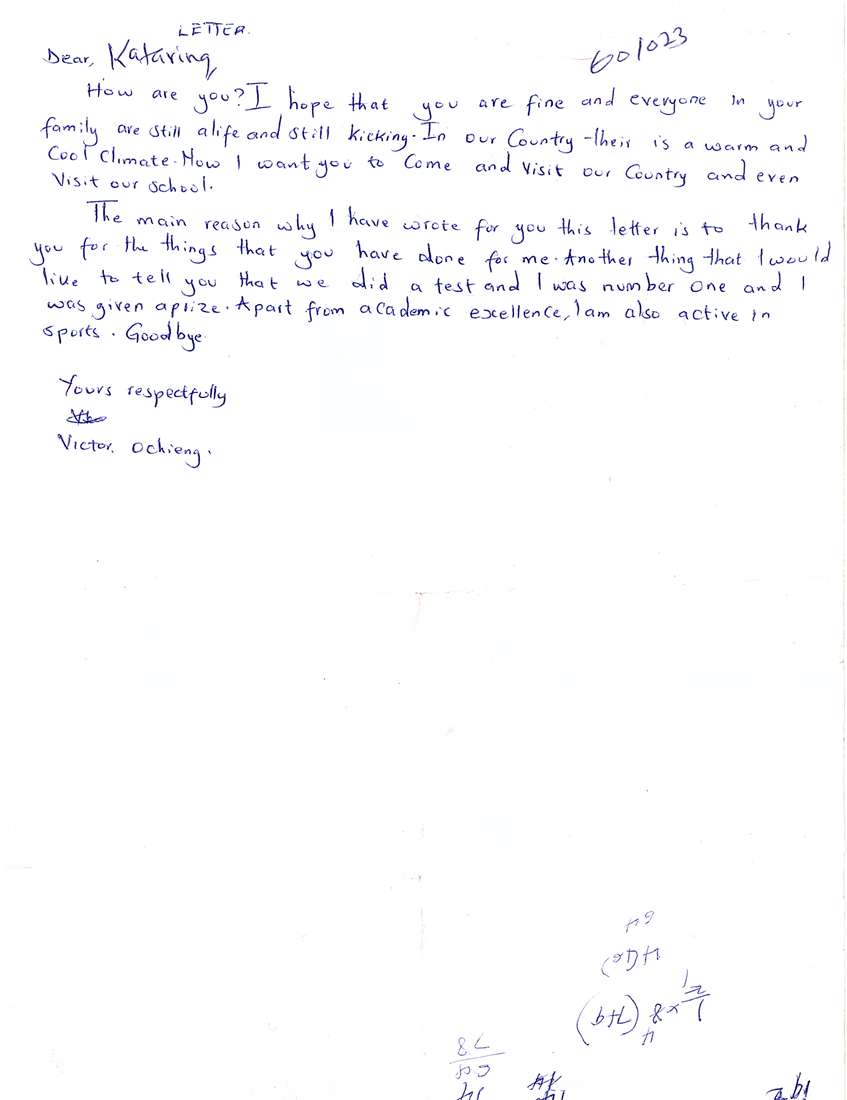 LETTER.
601023
Dear, Katarina
How are you? I hope that you are fine and everyone in your
family are still alife and still kicking. In our Country their is a warm and
Cool Climate. Now I want you to Come and Visit our Country and even
Visit our school.
The main reason why I have wrote for you this letter is to thank
you for the things that you have done for me. Another thing that I would
like to tell you that we did a test and I was number one and I
was given aprize. Apart from academic excellence, I am also active in
sports. Goodbye.
Yours respectfully
Victor. Ochieng.
64
1/2 x 8 (7+9)